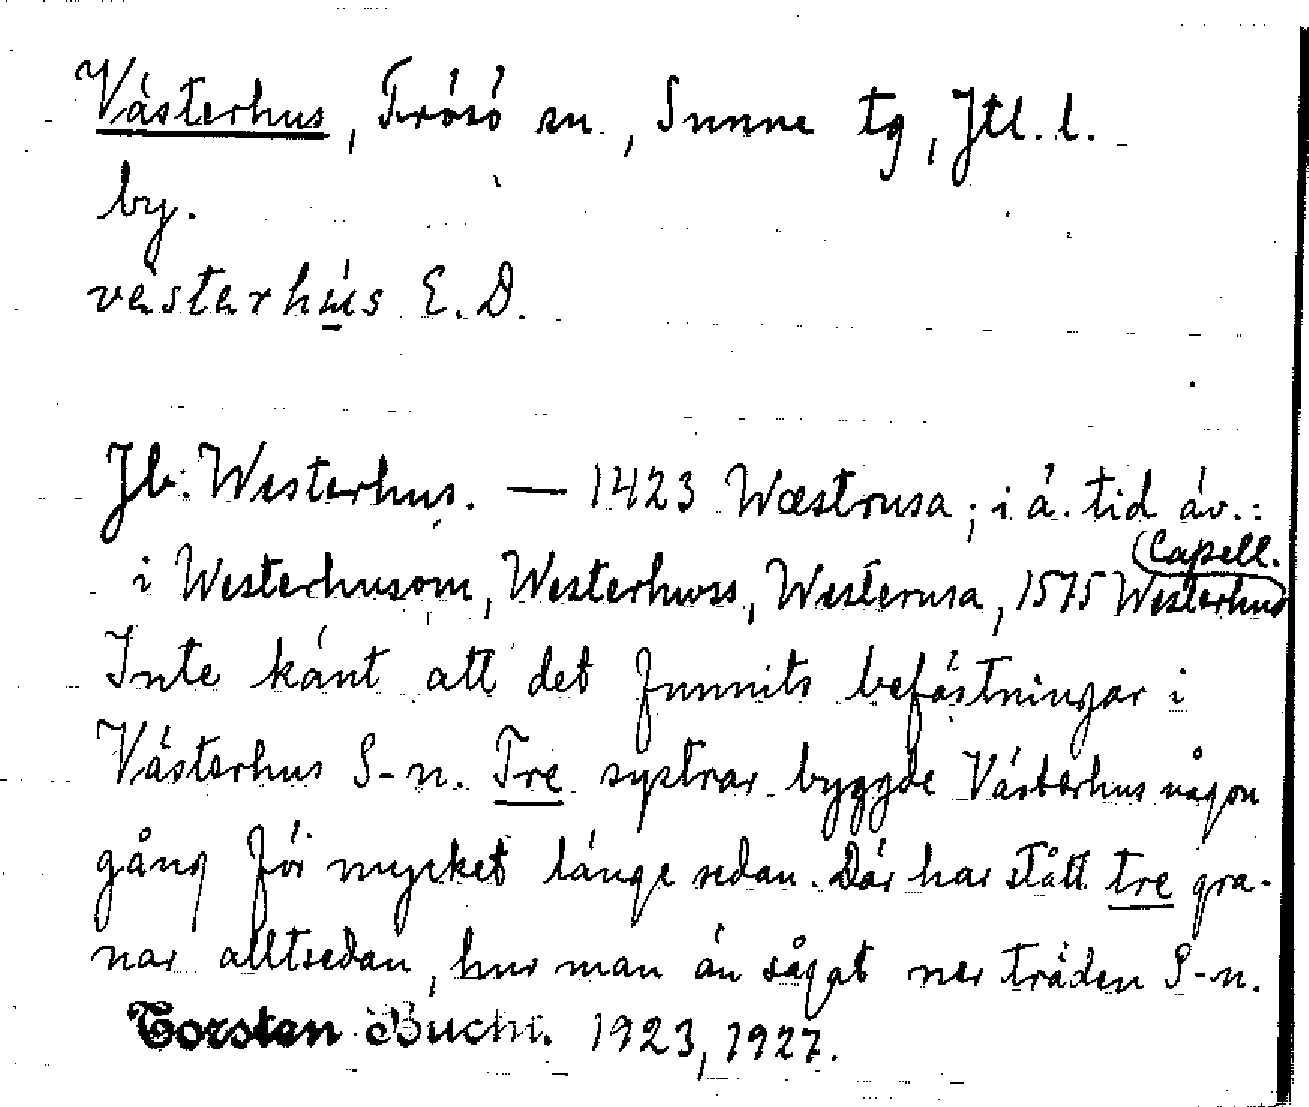 Västerhus, Frösö sn., Sunne tg, Jtl. l.
by.
västerhús E. D.
Jb: Westerhus. — 1423 Wæstrusa; i å. tid äv.:
i Westerhusom, Westerhwss, Westerusa, 1575 Westerhus (Capell.
Inte känt att det funnits befästningar i
Västerhus S-n. Tre systrar byggde Västerhus någon
gång för mycket länge sedan. Där har stått tre gra-
nar alltsedan, hur man än sågat ner träden S-n.
Torsten Bucht. 1923, 1927.